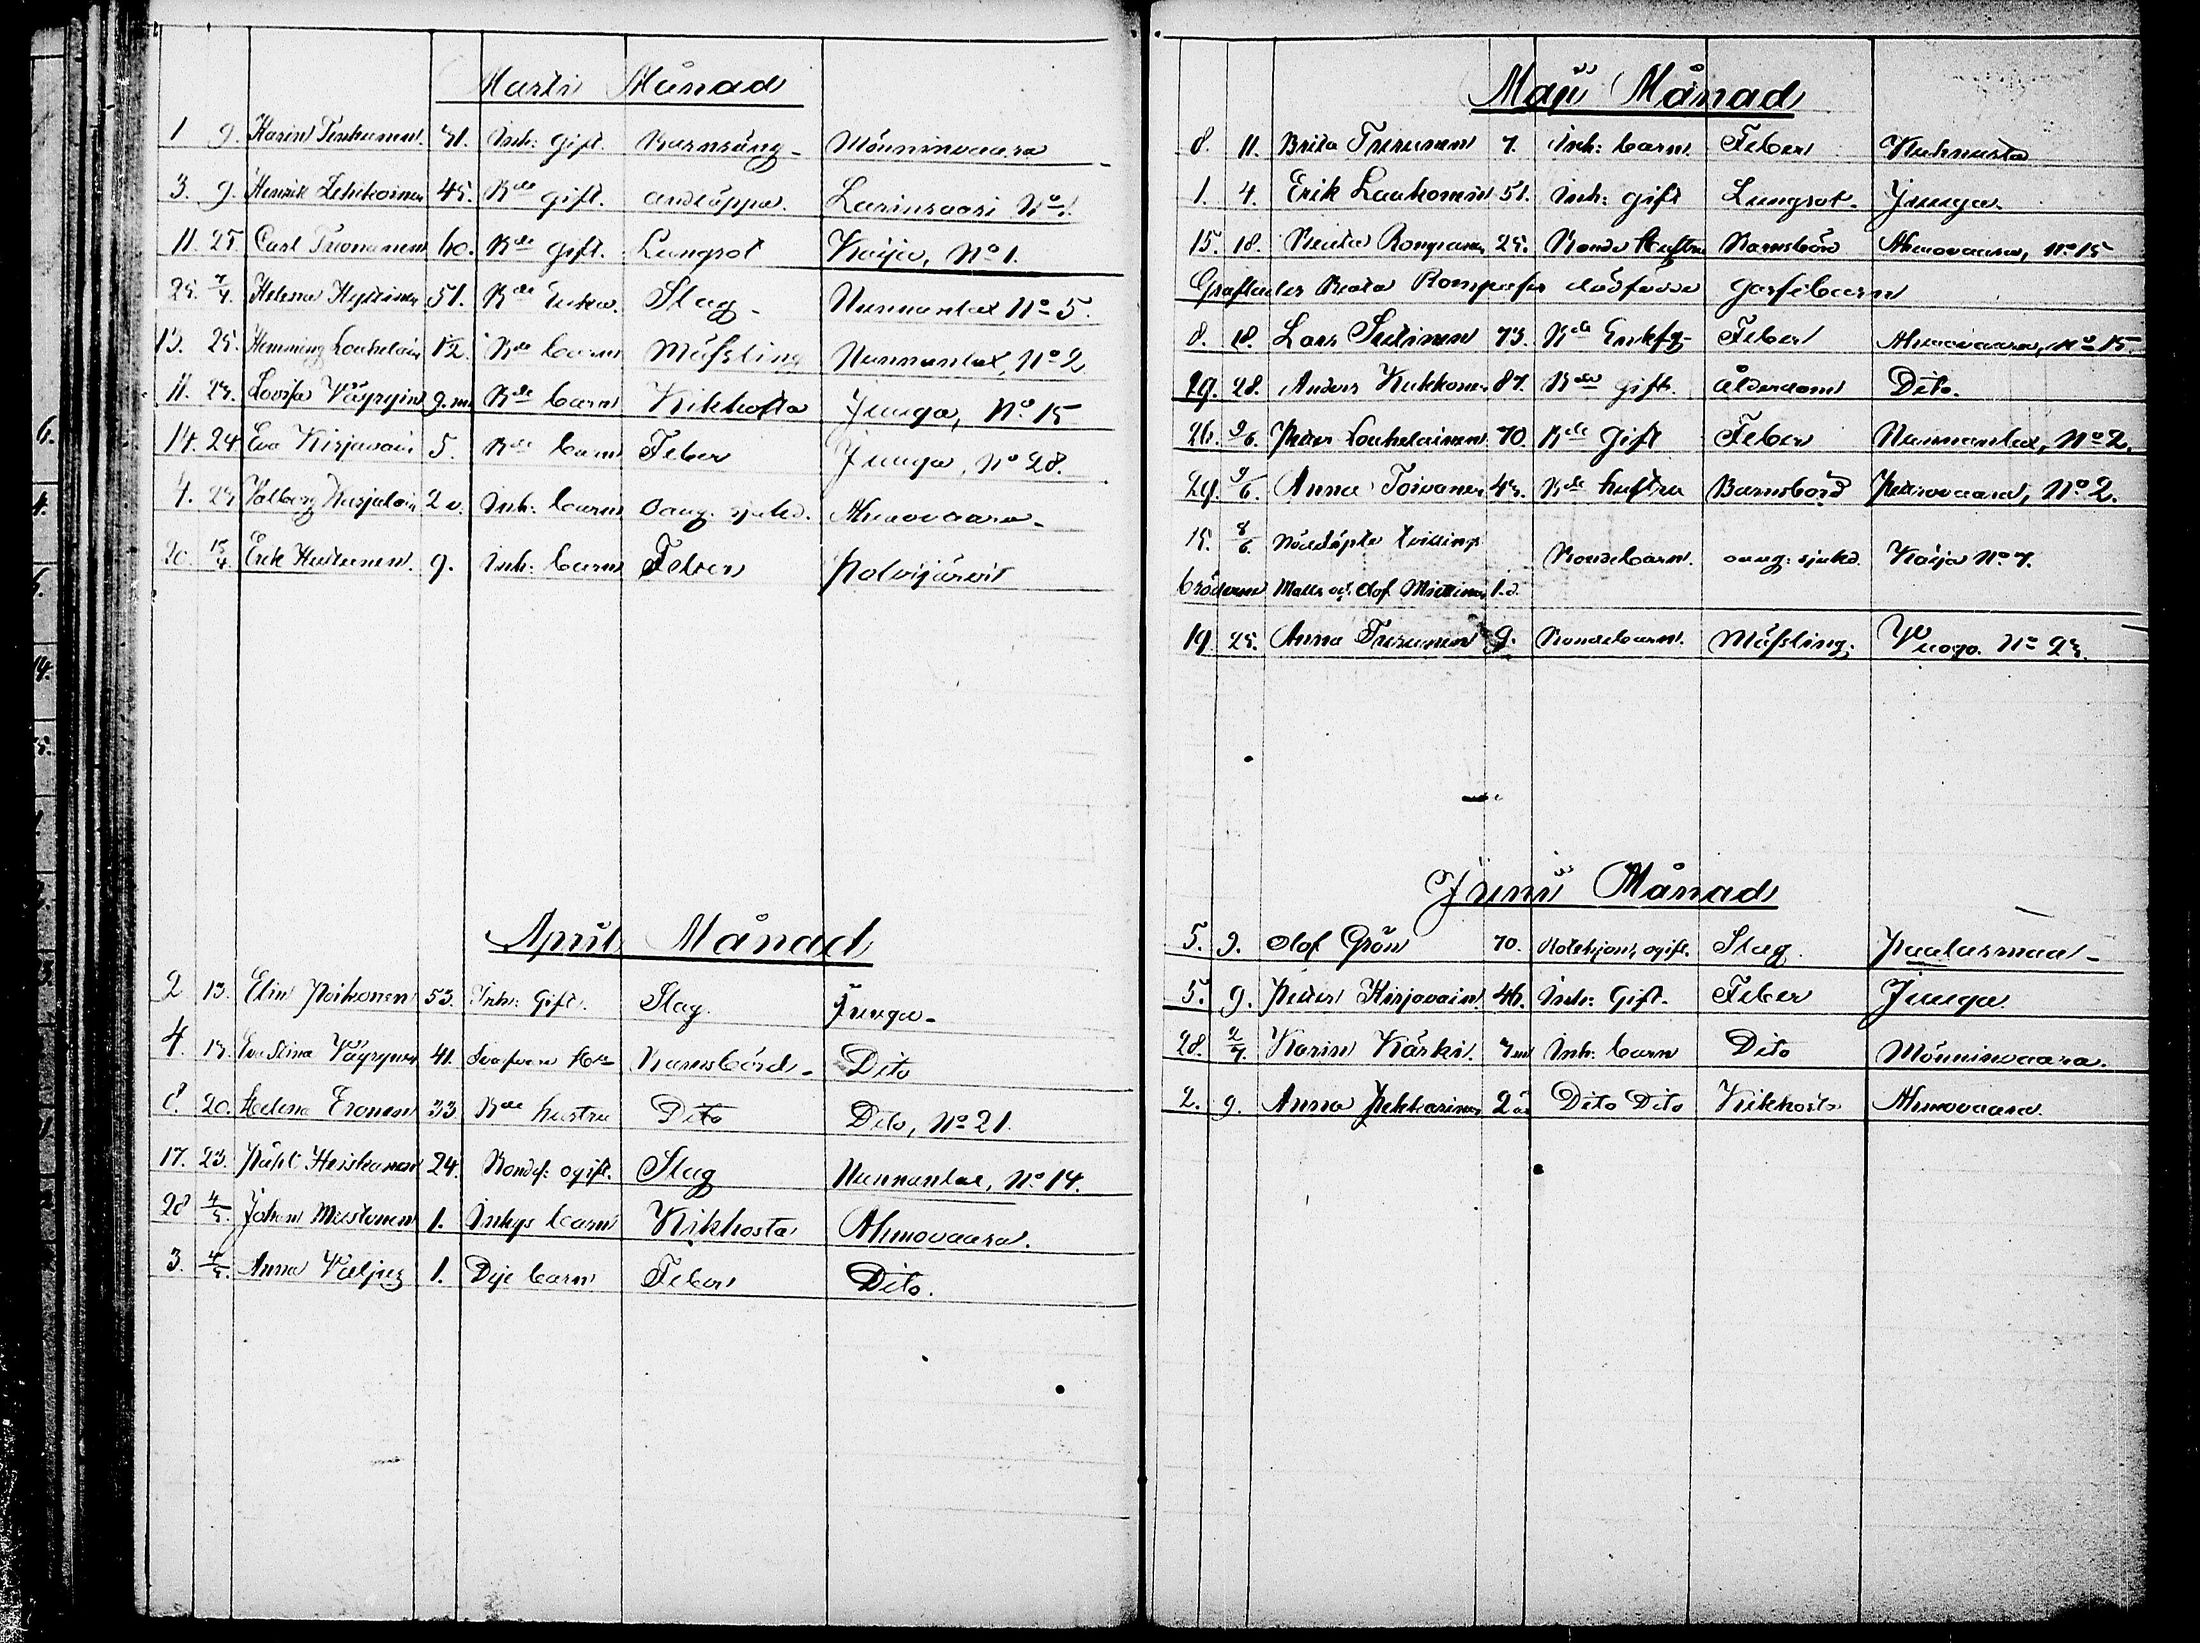 Marti Månad
1 9. Karin 31. Inh: gift. Barnsäng - Mönninvaara
3. 9. Henrik 45. Rde gift. andtäppa. Larinsaari No
11. 25. Carl 60. Rde gift. Lungsot Koija, No 1.
25. 7/4. Helena Hyttinen 51. Rde Enka. Slag - Nunnanlax No 5.
13. 25. Hemming Louhelain 1/2. Rde barn Mässling Nunnanlax, No 2
11. 25. Lovisa Väyryin 9.m Rde barn Kikhosta Juuga, No 15
14. 24 Eva Kirjavain 5. Rde barn Feber Juuga, No 28.
4. 25 Valborg 2 v. Inh: barn oang. sjukd. Ahmovaara -
20. 15/4 Erik 9. Inh: barn Feber Polvijärvi
April Månad
2 13. Elin Poikonen 53. Inh: Gift. Slag. Juuga -
4. 15. Eva Stina Väyrynen 41. Barnsbörd - Dito
8. 20. Helena Eronen 33 Rde hustru Dito Dito, No 21.
17. 23. Påhl Heiskanen 24. Bondes: ogift. Slag Nunnanlax, No 14.
28 4/5. Johan Mustonen 1. Inhys barn Kikhosta Ahmovaara.
3. 4/5. Anna 1. Dije barn Feber Dito.
Maji Månad
8. 11. Brita Turunen 7. Inh: barn Feber
1. 4. Erik Laukonen 51. Inh: gift Lungsot - Juuga.
15. 18. Beata Rompanen 25. Bonde hustru Barnsbörd Ahmovaara, No 15
Beata dödfödda gossebarn
8. 18. Lars Sutinen 73. Rde Enkfg - Feber Ahmovaara, No 15.
29. 28. Anders Kukkonen 87. Rde gift. Ålderdom Dito.
26. 9/6. Petter Louhelainen 70. Rde Gift Feber Nunnanlax, No 2.
29. 9/6. Anna Toivanen 45. Rde hustru Barnsbörd Petrovaara, No 2.
15. 8/6. Nöddöpta tvilling
Bondebarn. oang: sjukd. Koija No 7.
bröderna Matts och Olof Miettinen 1.d.
19. 25. Anna Turunen 9. Bondebarn. Mässling. Vuogo. No 25.
Junii Månad
5. 9. Olof Grön 70. Rotehjon, ogift. Slag. Paalasmaa -
5. 9. Petter Kirjavain 46. Inh: Gift. Feber Juuga
28. 2/7. Karin Kärki. 7m Inh: barn Dito Mönninvaara.
2. 9. Anna Pekkarinen 2 år Dito Dito Kikhosta Ahmovaara.